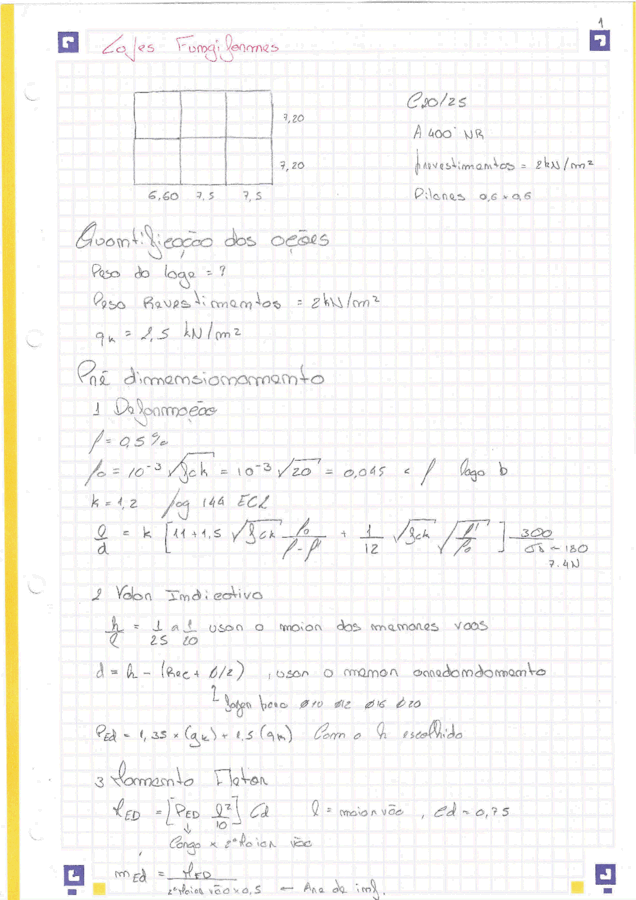 1
Lajes Fungiformes
7,20
7,20
6,60 7,5 7,5
C20/25
A 400 NR
previstimentos = 2kN/m²
Pilares 0,6 x 0,6
Quantificação das ações
Peso da lage = ?
Peso Revestimentos = 2kN/m²
qk = 2,5 kN/m²
Pré dimensionamento
1 Deformação
ρ = 0,5%
ρo = 10⁻³ √fck = 10⁻³ √20 = 0,045 < ρ logo b
k = 1,2 pag 144 EC2
l/d = k [11 + 1,5 √fck ρo/ρ-ρ' + 1/12 √fck √ρ'/ρo] 300/σs ~ 180
7.4N
2 Valor Indicativo
h/l = 1/25 a 1/20 usar o maior dos menores vãos
d = h - (Rec + ϕ/2) , usar o menor arredondamento
ϕ10 ϕ12 ϕ16 ϕ20
PEd = 1,35 x (gk) + 1,5 (qk) Com o h escolhido
3 Momento Fletor
MED = [PED l²/10] Cd l = maior vão , Cd = 0,75
Carga x 2º Maior vão
mEd = MED / 2º Maior vão x 0,5 ← Area de inf.